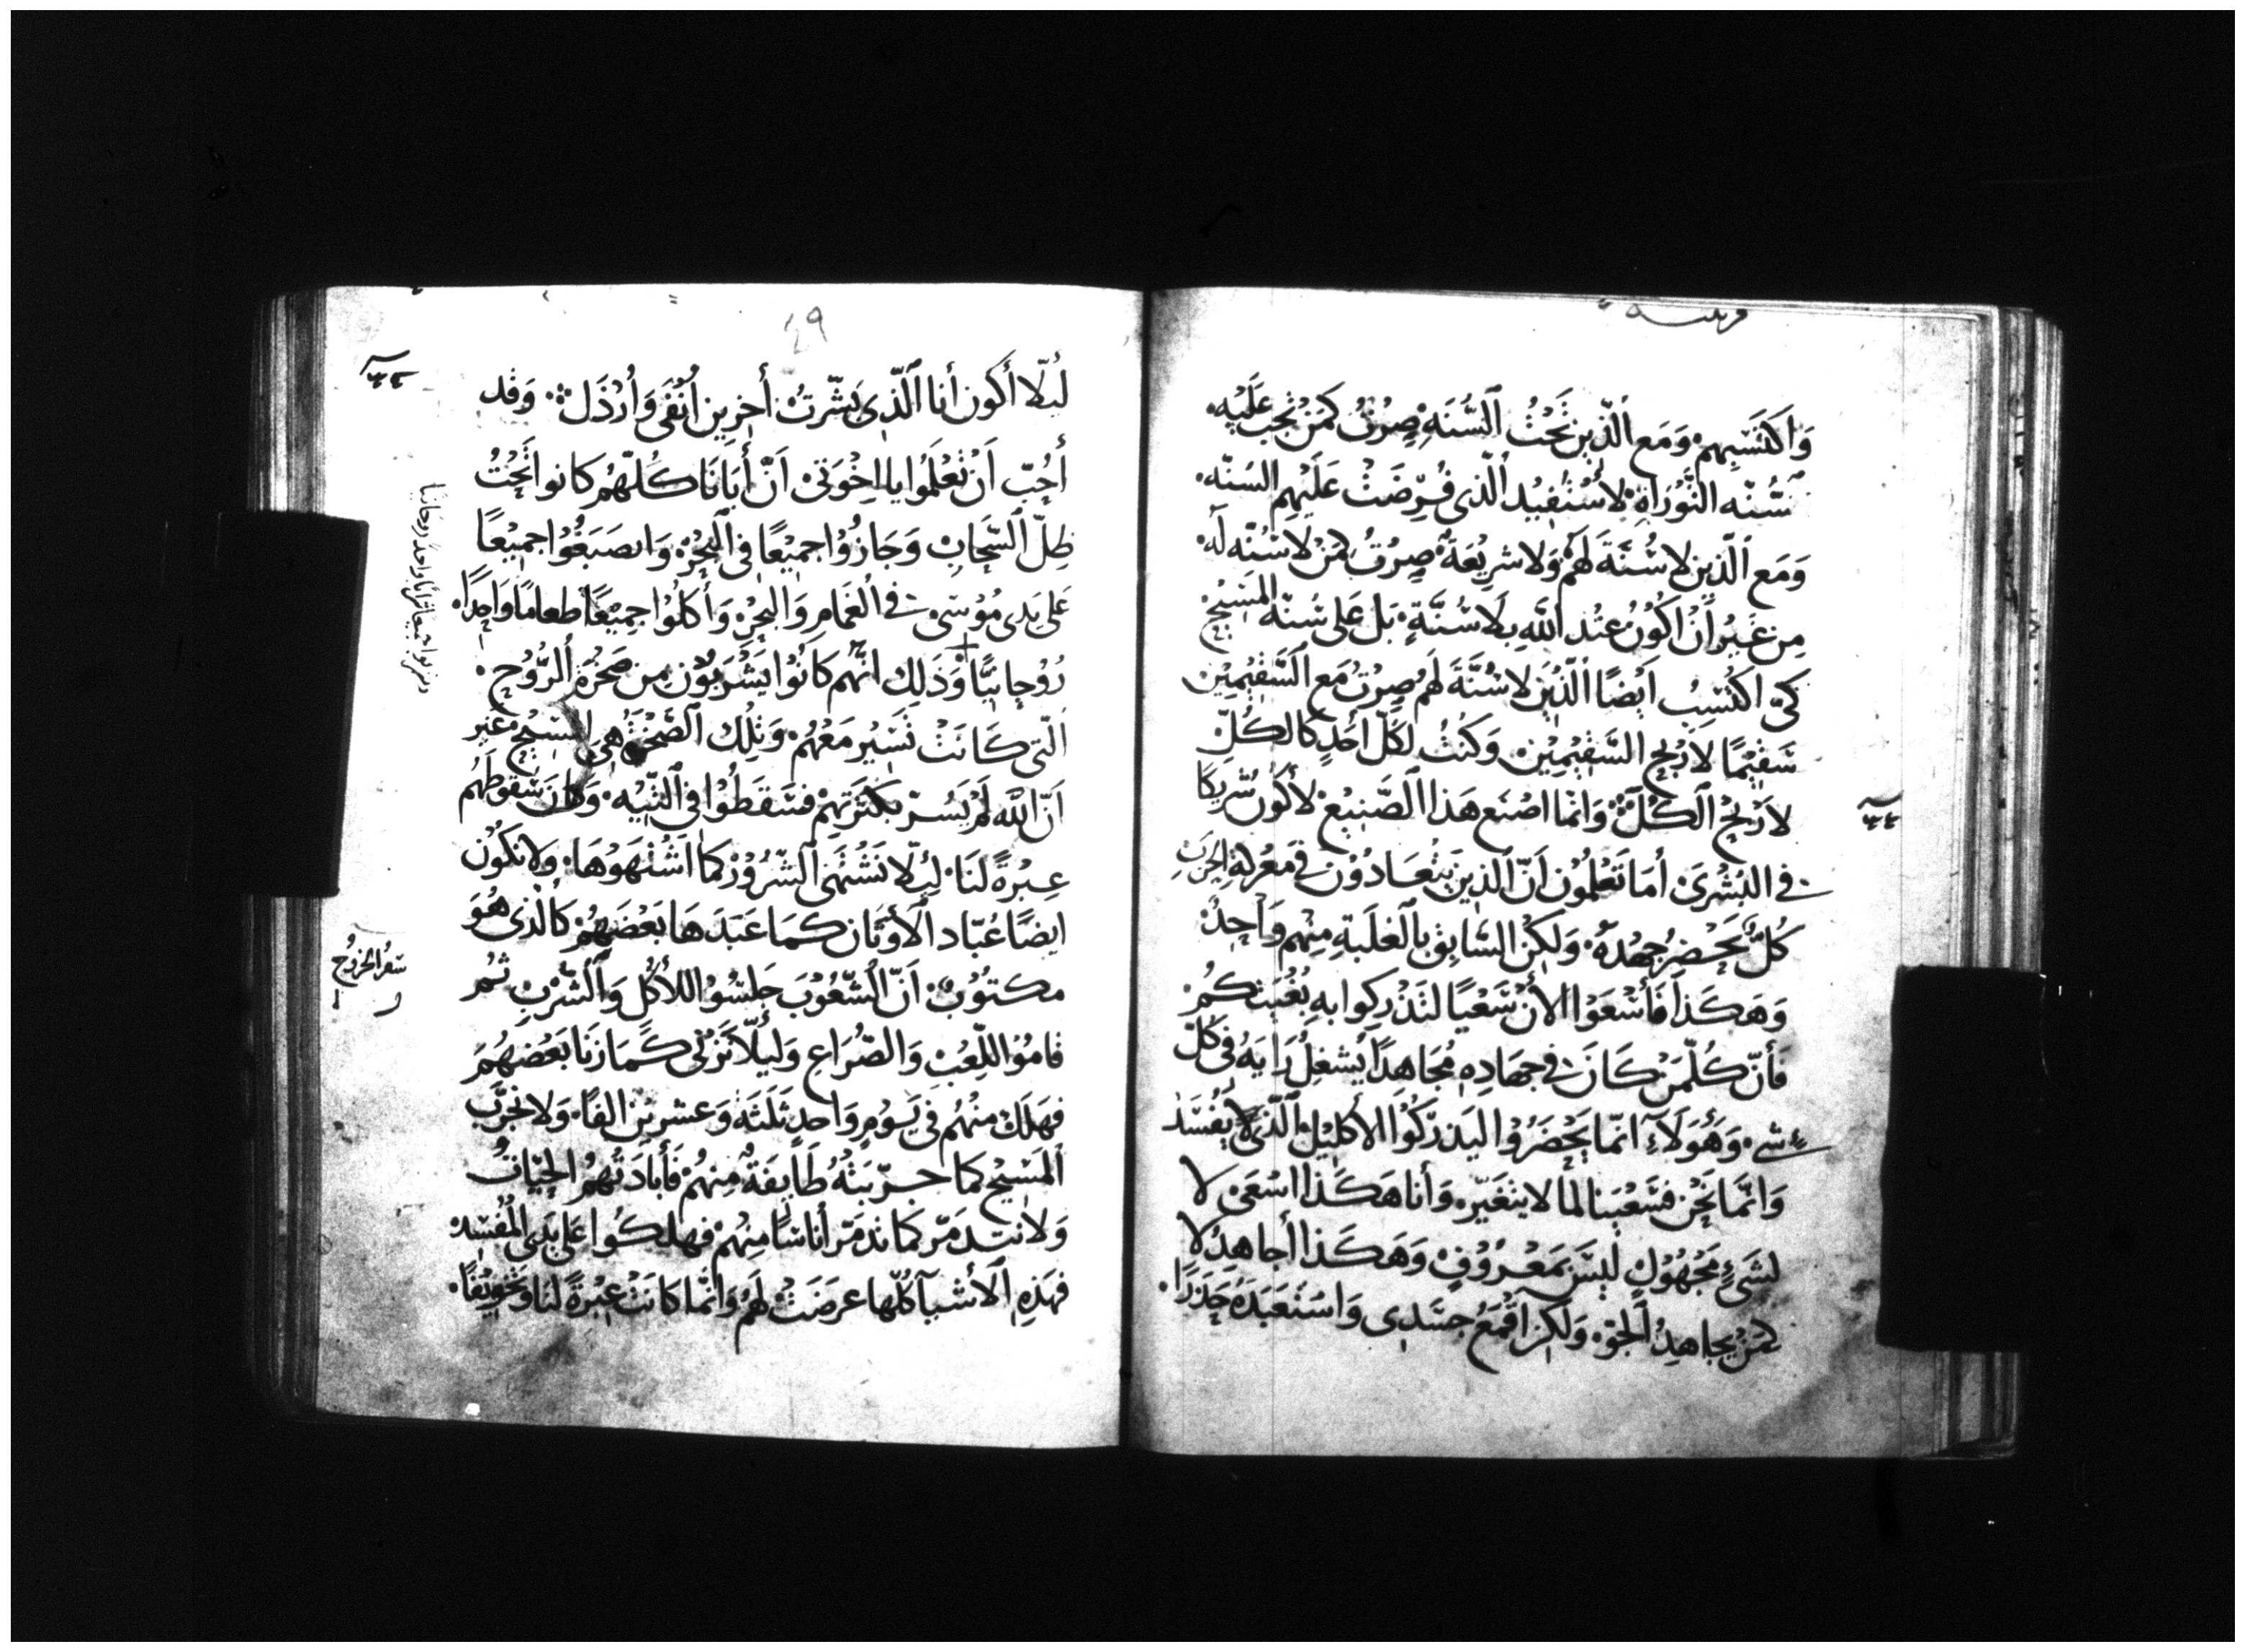 وَاكتَسَبهم وَمَع ٱلّذِين تَحْتُ ٱلسُّنَةِ صِرْتُ كَمَنْ تَجِب عَلَيْه
سُّنّه التَّوْرَاةِ لأسْتَفِيْد ٱلّذى فُرِّضَتْ عَلَيْهِم السُنّه
وَمَع ٱلّذِين لا سُنَّةَ لَهُمْ وَلا شرِيعَة صِرْتُ كمَنْ لا سُنّه لَه
مِن غَيْرِ أنْ اكُونُ عنْد ٱللَّه بِلا سُنَّةٍ بَل عَلى سُنّه المَسِيْح
كَىْ اكْتَسِبُ اَيْضًا ٱلّذِيْن لا سُنَّةَ لَهُم صِرْتُ مَع ٱلسَّقِيْمِيْن
سَقِيْمًا لارْبِح السَّقِيْمِيْن وَكنْتُ لكلّ أحَدٍ كالكُلّ
لارْبِحْ ٱلكُلّ وَانما اصْنَع هَذا ٱلصَّنِيْع لأكُون شرِيكا
فى البُشْرَى أمَا تَعْلَمُوْن اَنّ ٱلّذِين يَتعَادُوْن فى مَعْركَةِ الحَربِ
كُلٌّ يَحْضِرُ جهْدهُ وَلَكِنْ السَّابِق بِالغلَبَةِ مِنْهم وَاحِدٌ
وَهَكَذا فَأسْعَوْا الأنْ سَعْيًا لتَدْركوا بهِ بُغْيَتكُمْ
فَأنّ كُلّمَنْ كَانَ فى جهَادِهِ مُجَاهِدًا يُشغِلُ رَايَهُ فى كلّ
شىءٍ وَهَؤُلآءِ انّما يَحْضَرُوْا ليَدرّكُوْا الأكلِيْلْ ٱلّذى يُفسَد
وَانَّما نَحْن فسَعْيَنا لما لا يتَغَيّر وَأنا هَكَذا اسْعَىْ لا
لشَىءٍ مَجْهُوْلٍ لَيْسَ بمَعْرُوْفٍ وَهَكَذا أجاهِدُ لا
كمَنْ يجاهِدُ ٱلجوّ وَلكِن اقْمَعُ جسَدِى وَاسْتَعبَدَهُ حَذرًا
٤٩
لئلّا أكون أنا ٱلّذِى بَشَّرتُ أخرِين أُنْفَى وَأُرْذَل وَقد
أحُبّ اَنْ تعْلَمُوا يا اخْوَتى اَنّ أبَانَا كُلّهُم كانوا تَحْتُ
ظِلّ ٱلسَّحَابِ وَجَازُوا جمِيْعًا فى البَحْرْ وَانصَبَغُوا جمِيْعًا
عَلى يَدى مُوْسَى فى الغمَامِ وَالبَحْرِ وَأكلُوا جمِيْعًا طعامًا وَاحِدًا
رُوْحانِيًّا وَذَلِك انّهم كَانُوْا يَشْرَبُوْن مِن صَخْرَة ٱلرُّوْح
الّتى كَانَتْ تَسِيْر مَعَهُمْ وَتِلْك ٱلصَّخْرَةُ هِىَ المَسِيْح غَيْر
اَنّ اللّه لَمْ يَسُرّ بكَثْرَتهمْ فسَقَطُوا فى ٱلتّيْه وَكانَ سُقوْطهُم
عِبْرةً لنَا لئلّا نَشْتَهى ٱلشّرُوْرْ كمَا اشْتَهَوْهَا وَلا نَكُوْن
ايضًا عُبّاد ٱلأوْثَان كمَا عَبَدَهَا بَعْضَهُمْ كَالّذى هُوَ
مكتُوْب اَنّ ٱلشّعُوْبَ جَلسُوْا للأكْل وَٱلشُّرْبِ ثم
قامُوْا للّعِبْ وَالصّرَاعِ وَلَيلّا نَزْنى كمَا زنَا بَعْضهُمْ
فهَلَكَ منْهُم فى يَوْمٍ وَاحدٍ ثَلَثَة وَعشرِيْن الفًا وَلا نجَرّب
ٱلمَسِيْح كما جرّبَتْهُ طَايِفَةٌ مِنهُمْ فَأبادَتْهُم الحَيّاتُ
وَلا نتدَمّر كما تدمّر أناسًا مِنْهُمْ فهَلكُوا عَلى يَدى المُفْسِد
فهَذِهِ ٱلأشيآ كلّها عرضَتْ لَهُم وَانَّما كَانَتْ عِبْرةً لنَا وَتخوِيْفًا
سفر الخروج